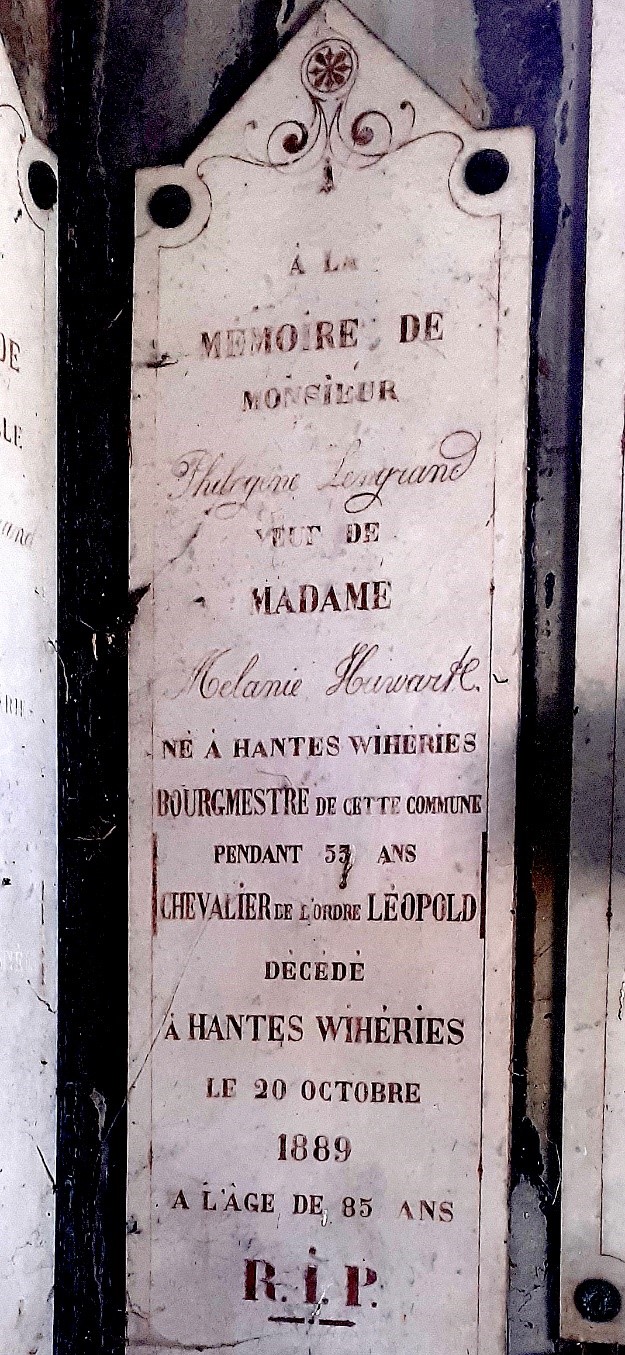 À LA
MÉMOIRE DE
MONSIEUR
Philogène Lengrand
VEUF DE
MADAME
Mélanie Huwart
NÉ À HANTES WIHÉRIES
BOURGMESTRE DE CETTE COMMUNE
PENDANT 53 ANS
CHEVALIER DE L'ORDRE LÉOPOLD
DÉCÉDÉ
À HANTES WIHÉRIES
LE 20 OCTOBRE
1889
A L'ÂGE DE 85 ANS
R.I.P.